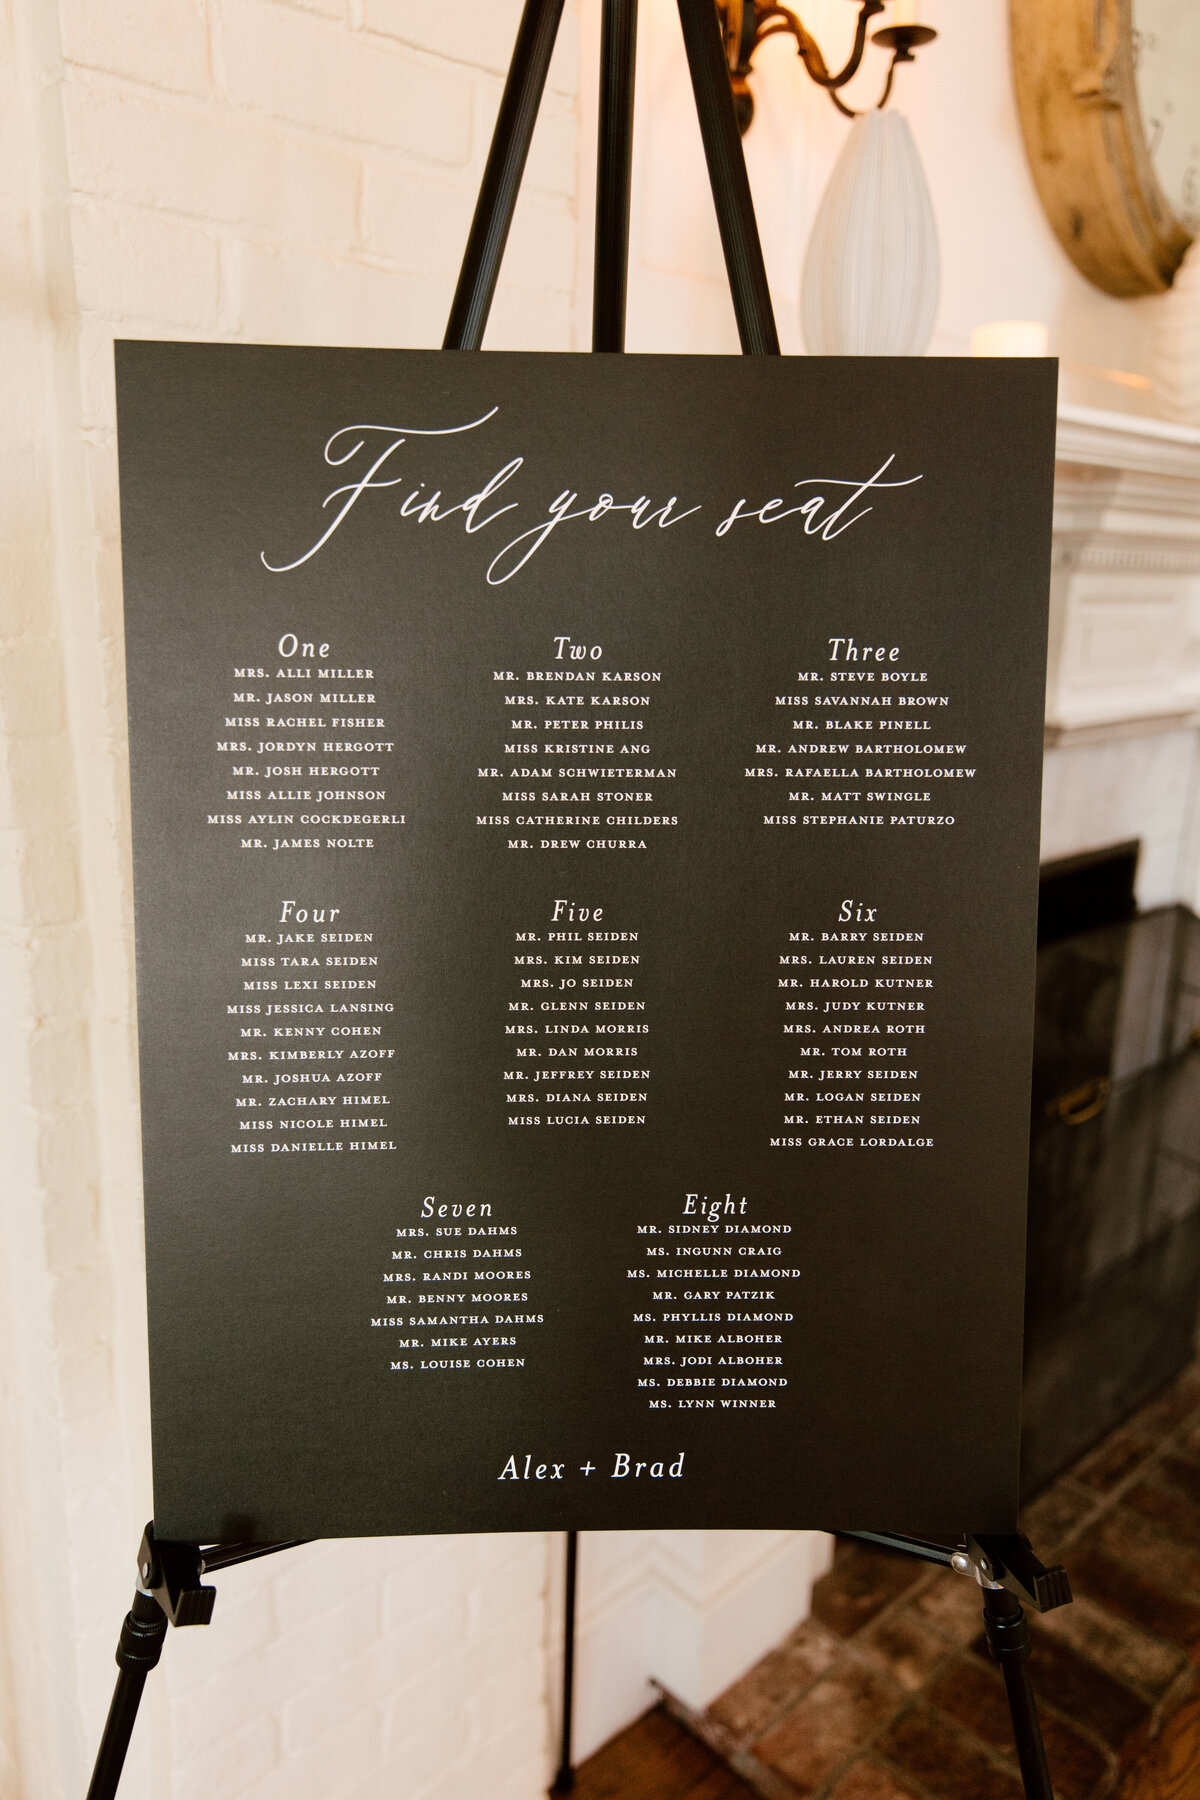 Find your seat
One
MRS. ALLI MILLER
MR. JASON MILLER
MISS RACHEL FISHER
MRS. JORDYN HERGOTT
MR. JOSH HERGOTT
MISS ALLIE JOHNSON
MISS AYLIN COCKDEGERLI
MR. JAMES NOLTE
Two
MR. BRENDAN KARSON
MRS. KATE KARSON
MR. PETER PHILIS
MISS KRISTINE ANG
MR. ADAM SCHWIETERMAN
MISS SARAH STONER
MISS CATHERINE CHILDERS
MR. DREW CHURRA
Three
MR. STEVE BOYLE
MISS SAVANNAH BROWN
MR. BLAKE PINELL
MR. ANDREW BARTHOLOMEW
MRS. RAFAELLA BARTHOLOMEW
MR. MATT SWINGLE
MISS STEPHANIE PATURZO
Four
MR. JAKE SEIDEN
MISS TARA SEIDEN
MISS LEXI SEIDEN
MISS JESSICA LANSING
MR. KENNY COHEN
MRS. KIMBERLY AZOFF
MR. JOSHUA AZOFF
MR. ZACHARY HIMEL
MISS NICOLE HIMEL
MISS DANIELLE HIMEL
Five
MR. PHIL SEIDEN
MRS. KIM SEIDEN
MRS. JO SEIDEN
MR. GLENN SEIDEN
MRS. LINDA MORRIS
MR. DAN MORRIS
MR. JEFFREY SEIDEN
MRS. DIANA SEIDEN
MISS LUCIA SEIDEN
Six
MR. BARRY SEIDEN
MRS. LAUREN SEIDEN
MR. HAROLD KUTNER
MRS. JUDY KUTNER
MRS. ANDREA ROTH
MR. TOM ROTH
MR. JERRY SEIDEN
MR. LOGAN SEIDEN
MR. ETHAN SEIDEN
MISS GRACE LORDALGE
Seven
MRS. SUE DAHMS
MR. CHRIS DAHMS
MRS. RANDI MOORES
MR. BENNY MOORES
MISS SAMANTHA DAHMS
MR. MIKE AYERS
MS. LOUISE COHEN
Eight
MR. SIDNEY DIAMOND
MS. INGUNN CRAIG
MS. MICHELLE DIAMOND
MR. GARY PATZIK
MS. PHYLLIS DIAMOND
MR. MIKE ALBOHER
MRS. JODI ALBOHER
MS. DEBBIE DIAMOND
MS. LYNN WINNER
Alex + Brad